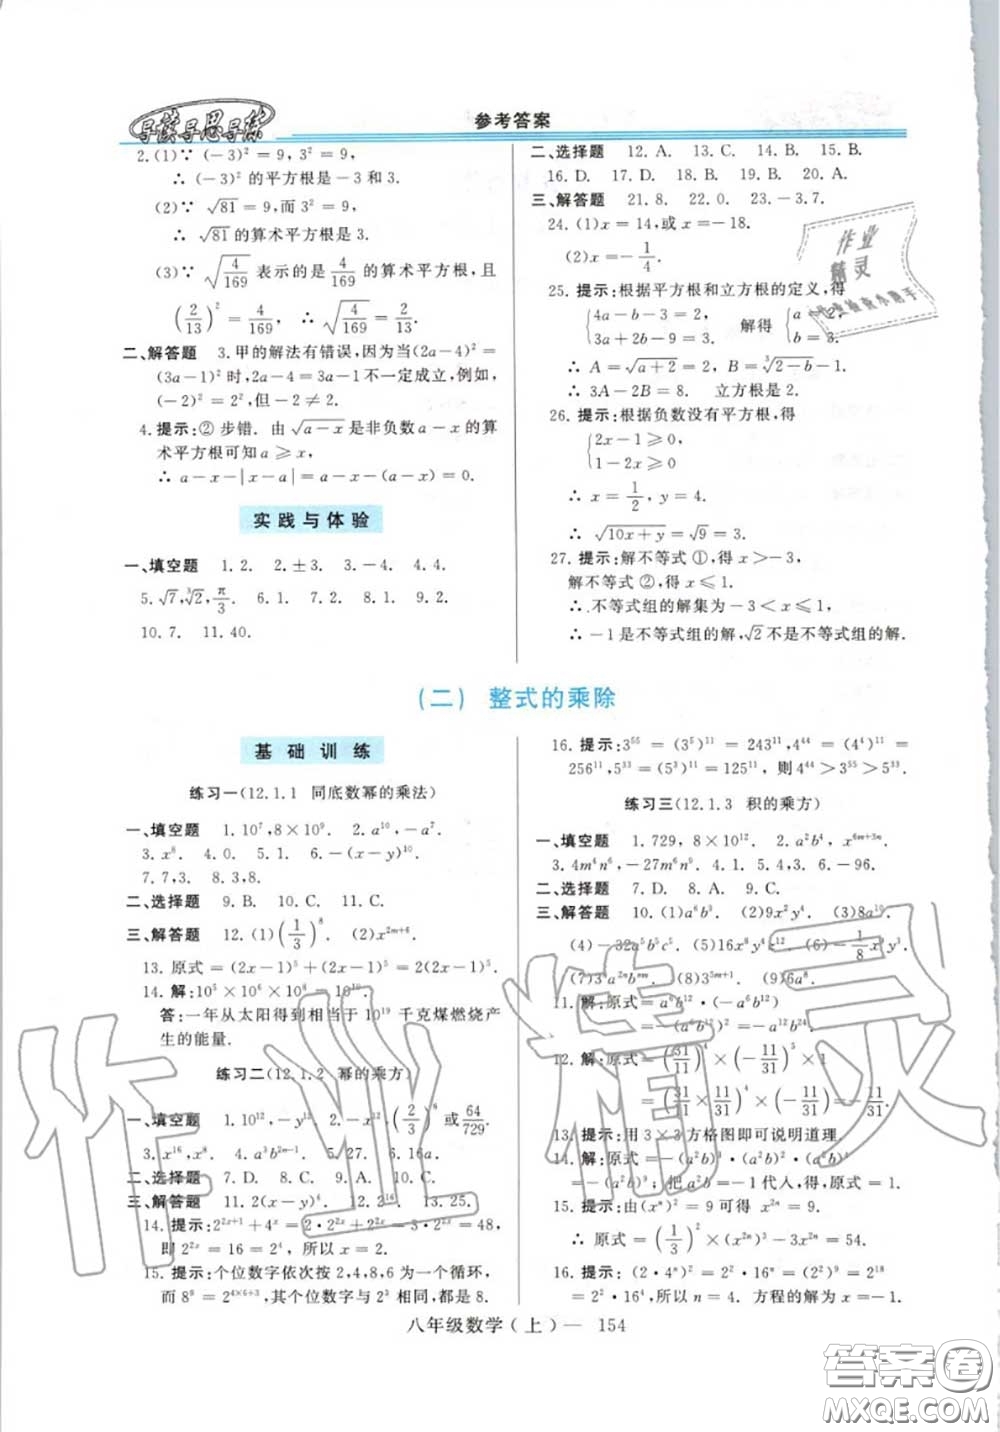 导读导思导练
参考答案
2.(1)∵ (-3)² = 9, 3² = 9,
∴ (-3)² 的平方根是-3 和 3.
(2)∵ √81 = 9,而 3² = 9,
∴ √81 的算术平方根是 3.
(3)∵ √(4/169) 表示的是 4/169 的算术平方根, 且
(2/13)² = 4/169, ∴ √(4/169) = 2/13.
二、解答题 3.甲的解法有错误,因为当(2a-4)² =
(3a-1)² 时,2a-4=3a-1 不一定成立,例如,
(-2)² = 2²,但-2 ≠ 2.
4. 提示:② 步错. 由 √(a-x) 是非负数 a-x 的算
术平方根可知 a ⩾ x,
∴ a-x-|x-a| = a-x-(a-x) = 0.
实践与体验
一、填空题 1.2. 2.±3. 3.-4. 4.4.
5.√7,∛2,π/3. 6.1. 7.2. 8.1. 9.2.
10.7. 11.40.
二、选择题 12. A. 13. C. 14. B. 15. B.
16. D. 17. D. 18. B. 19. B. 20. A.
三、解答题 21. 8. 22. 0. 23. -3,7.
24. (1)x = 14,或 x=-18.
(2)x=-1/4.
25. 提示:根据平方根和立方根的定义,得
{4a-b-3=2, 解得 {a=2,
3a+2b-9=1, b=3.
∴ A = √(a+2) = 2, B = ∛(2-b)-1.
∴ 3A-2B = 8. 立方根是 2.
26. 提示:根据负数没有平方根,得
{2x-1⩾0,
1-2x⩾0.
∴ x = 1/2, y = 4.
∴ √(10x+y) = √9 = 3.
27. 提示:解不等式 ①,得 x >-3,
解不等式 ②,得 x ⩽ 1.
∴ 不等式组的解集为-3 < x ⩽ 1.
∴ -1 是不等式组的解,√2 不是不等式组的解.
(二) 整式的乘除
基础训练
练习一(12.1.1 同底数幂的乘法)
一、填空题 1.10⁷,8×10⁹. 2.a¹⁰,-a⁷.
3.x⁸. 4.0. 5.1. 6.-(x-y)¹⁰.
7.7,3. 8.3,8.
二、选择题 9. B. 10. C. 11. C.
三、解答题 12. (1)(1/3)⁸ (2)x²ᵐ⁺⁶.
13. 原式 = (2x-1)⁵ + (2x-1)⁵ = 2(2x-1)⁵.
14. 解:10⁵ × 10⁶ × 10⁸ = 10¹⁹.
答:一年从太阳得到相当于 10¹⁹ 千克煤燃烧产
生的能量.
练习二(12.1.2 幂的乘方)
一、填空题 1.10¹²,-y⁶. 2.-x⁶,(2/3)⁶ 或 64/729.
3.x¹⁶,x⁸. 4.a⁶b²ᵐ⁻¹. 5.27. 6.16a.
二、选择题 7. D. 8. C. 9. A. 10. C.
三、解答题 11.2(x-y)⁶. 12.2¹⁶. 13.25.
14. 提示:2²ˣ⁺¹ + 4ˣ = 2·2²ˣ + 2²ˣ = 3·2²ˣ = 48,
即 2²ˣ = 16 = 2⁴, 所以 x = 2.
15. 提示:个位数字依次按 2,4,8,6 为一个循环,
而 8⁹ = 2⁴ˣ⁶⁺³,其个位数字与 2³ 相同,都是 8.
16. 提示:3⁵⁵ = (3⁵)¹¹ = 243¹¹,4⁴⁴ = (4⁴)¹¹ =
256¹¹,5³³ = (5³)¹¹ = 125¹¹, 则 4⁴⁴ > 3⁵⁵ > 5³³.
练习三(12.1.3 积的乘方)
一、填空题 1.729,8×10¹². 2.a²b⁴,x⁶ᵐ⁺³ⁿ.
3.4m⁴n⁶,-27m⁶n⁹. 4.1. 5.4. 6.-96.
二、选择题 7. D. 8. A. 9. C.
三、解答题 10. (1)a⁶b³. (2)9x²y⁴. (3)8a¹⁹.
(4)-32a⁵b⁵c⁵. (5)16x⁸y⁴z¹². (6)-1/8x⁶y³.
(7)3ᵐa²ⁿbᵐ. (8)3⁵ᵐ⁺¹. (9)6a⁸.
11. 解:原式 = a⁶b¹²·(-a⁶b¹²)
=-(a⁶b¹²)² =-a¹²b²⁴.
12. 解:原式 = (31/11)⁴ × (-11/31)⁵ × 1
= (31/11)⁴ × (-11/31)⁴ × (-11/31) = -11/31.
13. 提示:用 3×3 方格图即可说明道理.
14. 解:原式 =-(a²b)³·(a²b)·(a²b)⁵
=-(a²b)⁹; 把 a²b =-1 代入,得,原式 = 1.
15. 提示:由(xⁿ)² = 9 可得 x²ⁿ = 9.
∴ 原式 = (1/3)² × (x²ⁿ)³ - 3x²ⁿ = 54.
16. 提示: (2·4ⁿ)² = 2²·16ⁿ = (2⁹)² = 2¹⁸
= 2²·16⁴,所以 n = 4. 方程的解为 x = 4.
八年级数学(上)— 154
作业
精灵
作业精灵
答案卷